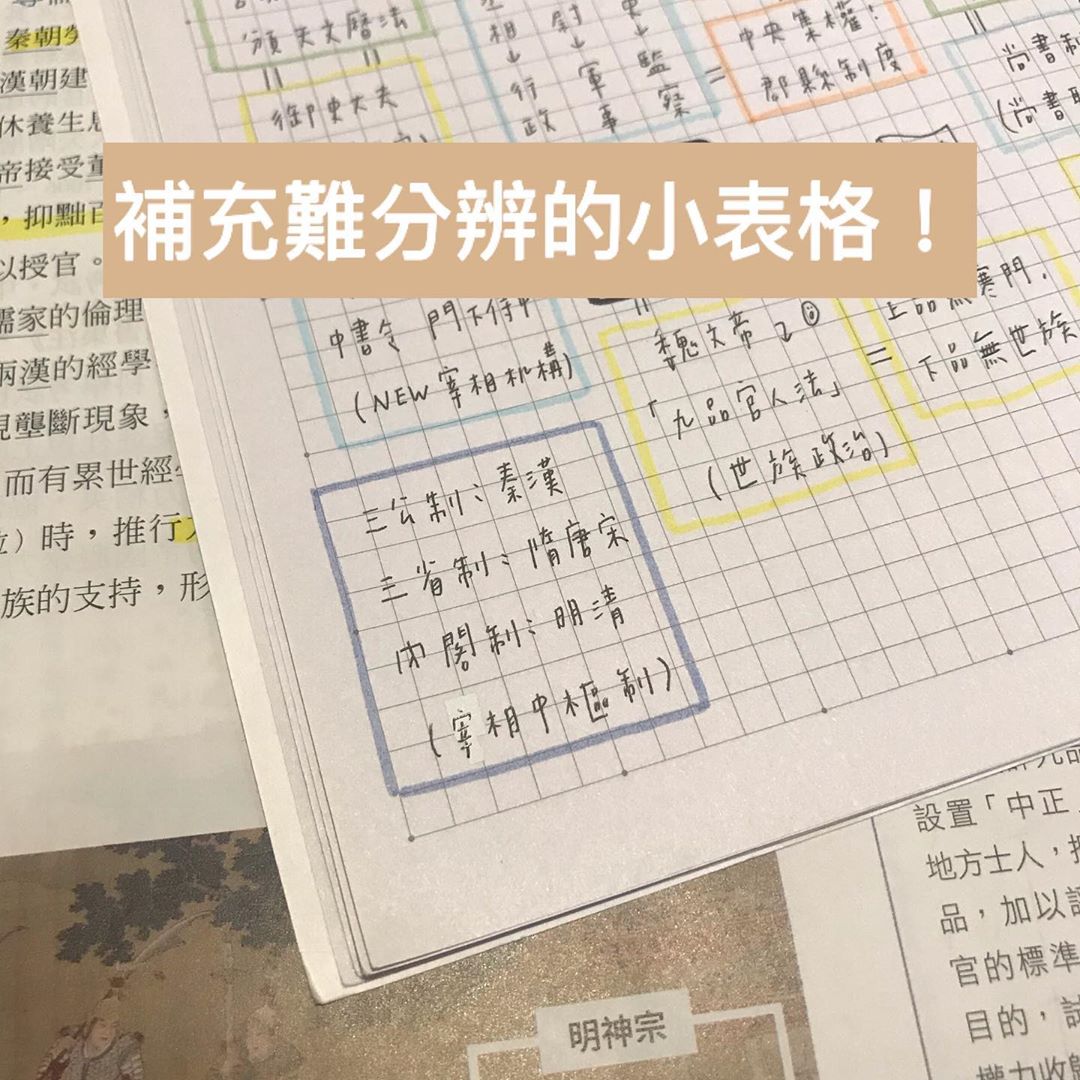 補充難分辨的小表格！
秦朝
漢朝建
休養生息
帝接受董
，抑黜百
以授官。
儒家的倫理
兩漢的經學
現壟斷現象，
而有累世經學
）時，推行
族的支持，形
頒天文曆法
御史大夫
相↓行政
↓軍事
史↓監察
=
中央集權！
郡縣制度
尚書制
(尚書
中書令 門下侍中
(NEW宰相机構)
魏文帝↓☺
「九品官人法」
(世族政治)
=
上品無寒門.
下品無世族
三公制：秦漢
三省制：隋唐宋
內閣制：明清
(宰相中樞制)
設置「中正
地方士人，按
品，加以評
官的標準
目的，試
權力收歸
明神宗